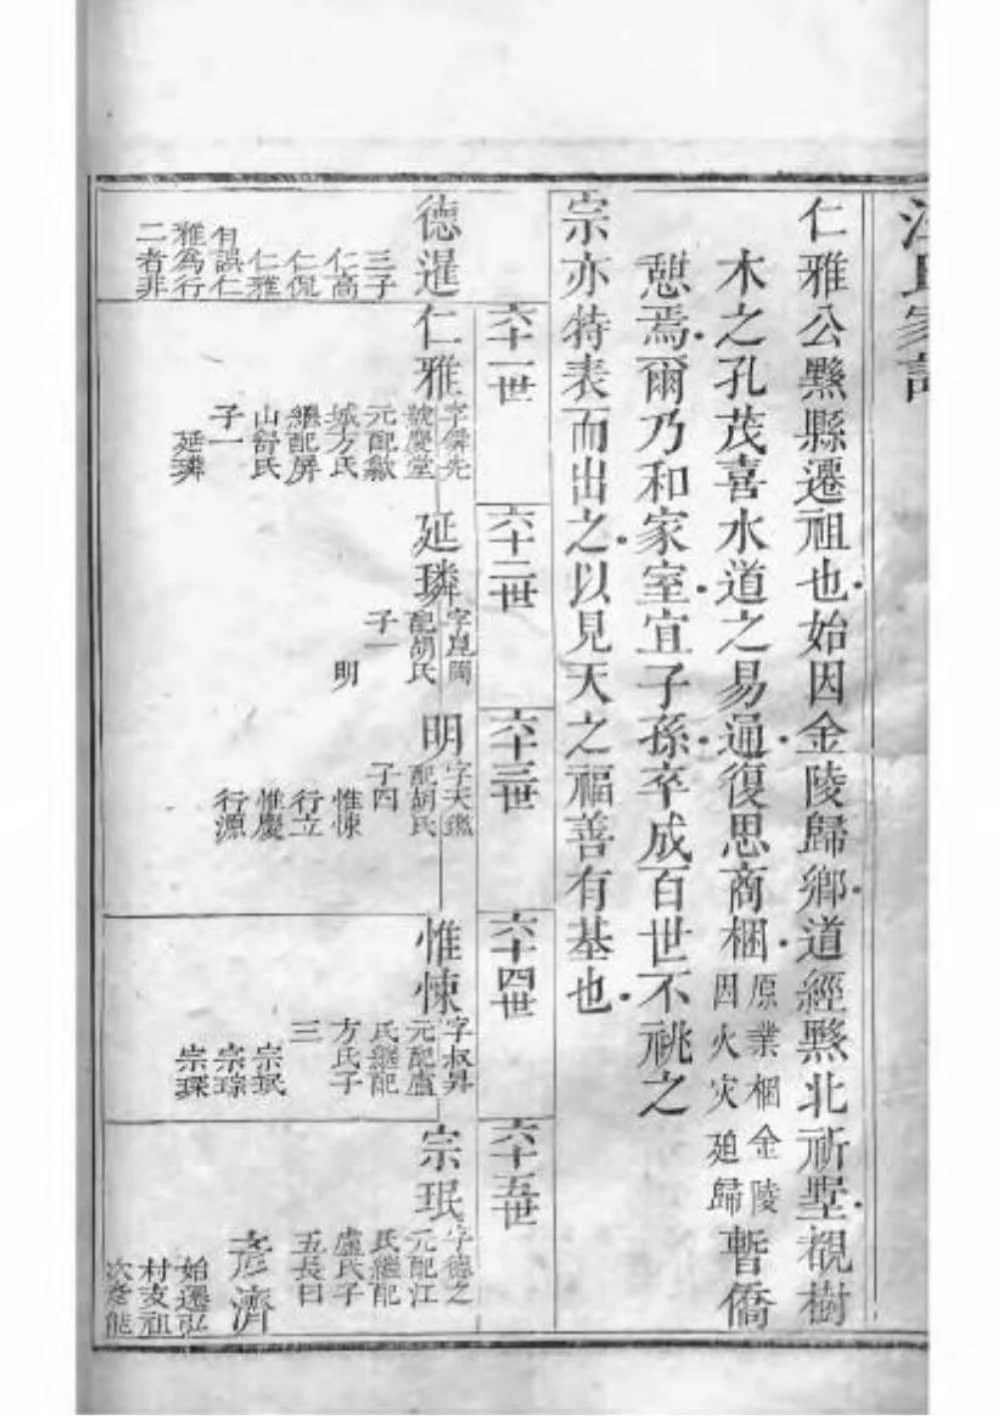 汪氏家
仁雅公黟縣遷祖也始因金陵歸鄉道經黟北祈墅覩樹
木之孔茂喜水道之易通復思商梱
原業梱金陵
因火灾廹歸
暫僑
憇焉爾乃和家室宜子孫卒成百世不祧之
宗亦特表而出之以見天之福善有基也
六十一世
六十二世
六十三世
六十四世
六十五世
德暹
三子
仁高
仁侃
仁雅
有誤仁
雅為行
二者非
仁雅
字隣先
號慶堂
元配歙
城方氏
繼配屏
山舒氏
子一
延璘
延璘
字崑岡
配胡氏
子一
明
明
字天鑑
配胡氏
子四
惟悚
行立
惟慶
行源
惟悚
字叔昇
元配盧
氏繼配
方氏子
三
宗珉
宗琮
宗琛
宗珉
字德之
元配江
氏繼配
盧氏子
五長曰
彥濟
始遷弘
村支祖
次彥能